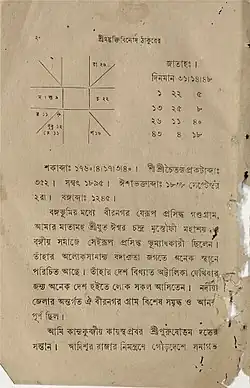 ২ শ্রীমদ্ভক্তিবিনোদ ঠাকুরের
জাতাহঃ ।
দিনমান ৩১।১৪।৪৮
১ ২২ ৫
১৩ ২৫ ৮
২৬ ১১ ৪০
৪৩ ৪ ১৮
শকাব্দাঃ ১৭৬০।৪।১৭।৩৪০। শ্রীশ্রীচৈতন্যপ্রকটাব্দাঃ
৩৫২ । সম্বৎ ১৮৯৫ । ঈশাভক্তাব্দাঃ ১৮৩৮ সেপ্টেম্বর
২রা । বঙ্গাব্দাঃ ১২৪৫ ।
বঙ্গভূমির মধ্যে বীরনগর যেরূপ প্রসিদ্ধ গণ্ডগ্রাম,
আমার মাতামহ শ্রীযুত ঈশ্বর চন্দ্র মুস্তৌফী মহাশয়
বঙ্গীয় সমাজে সেইরূপ প্রসিদ্ধ ভূম্যধিকারী ছিলেন।
তাঁহার অলোকসামান্য বদান্যতা জগতে অনেক স্থানে
পরিচিত আছে। তাঁহার দেশ বিখ্যাত অট্টালিকা দেখিবার
জন্য অনেক দেশ হইতে লোক সকল আসিতেন। নদীয়া
জেলার অন্তর্গত ঐ বীরনগর গ্রাম বিশেষ সমৃদ্ধ ও আনন্দ
পূর্ণ ছিল।
আমি কান্যকুব্জীয় কায়স্থ প্রবর শ্রীপুরুষোত্তম দত্তের
সন্তান। আদিশূর রাজার নিমন্ত্রণে গৌড়দেশে সমাগত